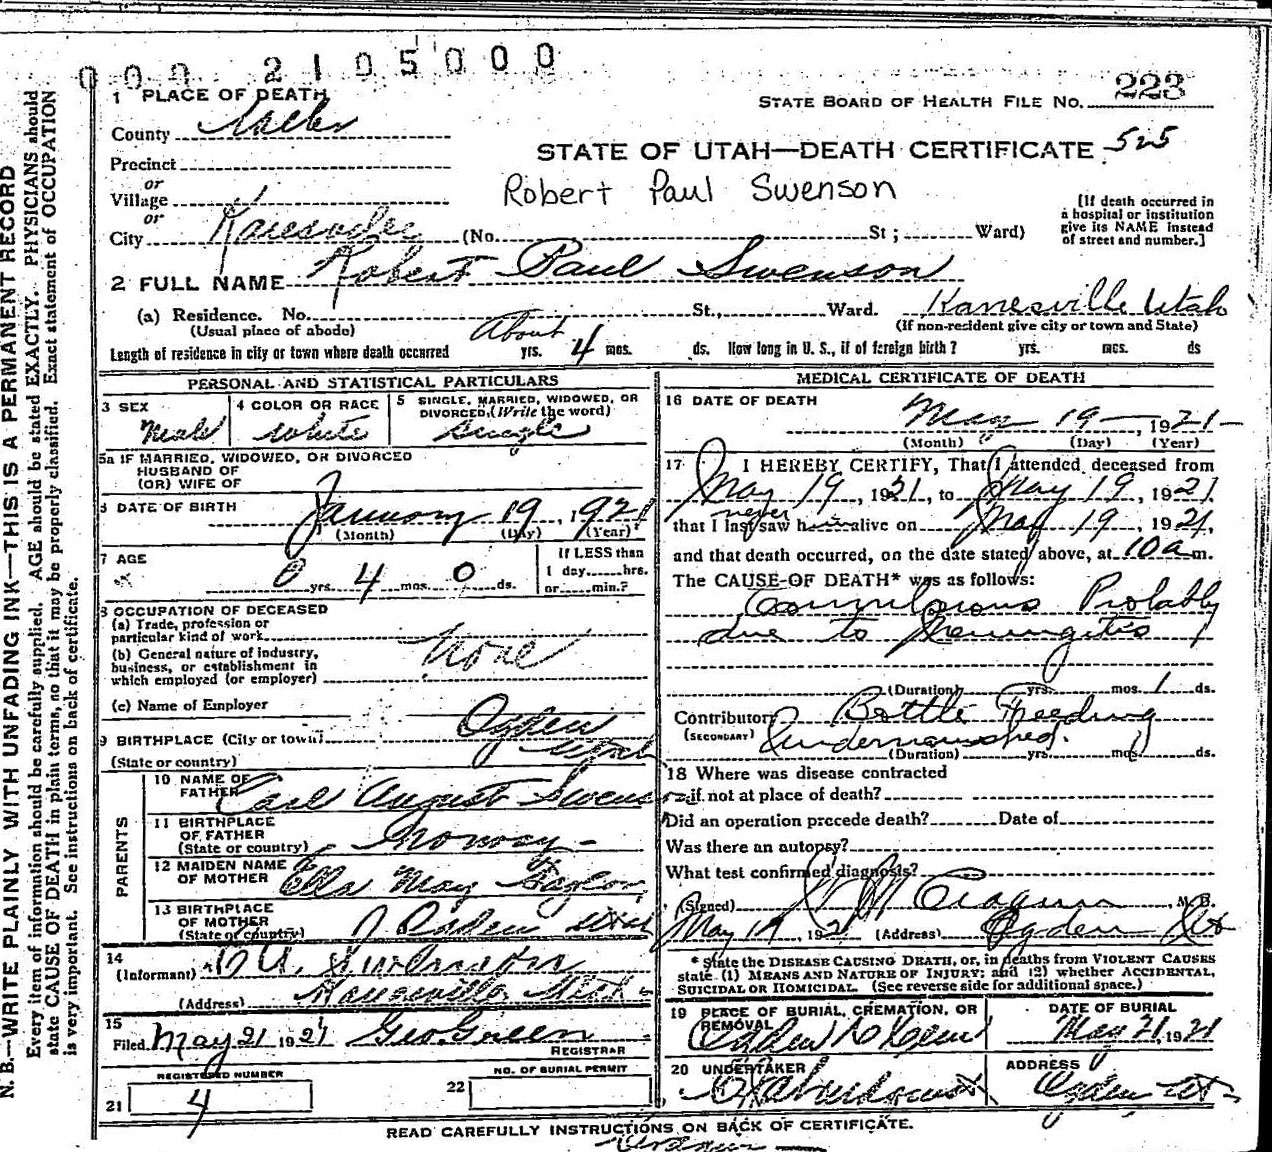 000 2105000
223
STATE BOARD OF HEALTH FILE No.
1 PLACE OF DEATH
County Weber
STATE OF UTAH—DEATH CERTIFICATE 525
Precinct
or
Village
Robert Paul Swenson
[If death occurred in
a hospital or institution
give its NAME instead
of street and number.]
or
City Kanesville (No. St; Ward)
2 FULL NAME Robert Paul Swenson
(a) Residence. No. St., Ward. Kanesville Utah
(Usual place of abode) (If non-resident give city or town and State)
Length of residence in city or town where death occurred About yrs. 4 mos. ds. How long in U. S., if of foreign birth? yrs. mos. ds
PERSONAL AND STATISTICAL PARTICULARS
3 SEX Male
4 COLOR OR RACE White
5 SINGLE, MARRIED, WIDOWED, OR
DIVORCED, (Write the word) Single
5a IF MARRIED, WIDOWED, OR DIVORCED
HUSBAND OF
(OR) WIFE OF
6 DATE OF BIRTH January 19, 1921
(Month) (Day) (Year)
7 AGE 0 yrs. 4 mos. 0 ds.
If LESS than
1 day......hrs.
or......min.?
8 OCCUPATION OF DECEASED
(a) Trade, profession or
particular kind of work
(b) General nature of industry,
business, or establishment in
which employed (or employer)
None
(c) Name of Employer
9 BIRTHPLACE (City or town) Ogden
(State or country) Utah
PARENTS
10 NAME OF
FATHER Carl August Swenson
11 BIRTHPLACE
OF FATHER
(State or country) Norway
12 MAIDEN NAME
OF MOTHER Ella May
13 BIRTHPLACE
OF MOTHER
(State or country) Ogden Utah
14
(Informant) C A. Swenson
(Address) Kanesville Utah
15
Filed May 21 1921 Geo Green
REGISTRAR
REGISTERED NUMBER
21 4
NO. OF BURIAL PERMIT
22
MEDICAL CERTIFICATE OF DEATH
16 DATE OF DEATH
May 19—, 1921—
(Month) (Day) (Year)
17 I HEREBY CERTIFY, That I attended deceased from
May 19, 1921, to May 19, 1921
never
that I last saw h alive on May 19, 1921,
and that death occurred, on the date stated above, at 10 a m.
The CAUSE OF DEATH* was as follows:
Convulsions Probably
due to Meningitis
(Duration) yrs. mos. 1 ds.
Contributory Bottle Feeding
(SECONDARY) Undernourished.
(Duration) yrs. mos. ds.
18 Where was disease contracted
if not at place of death?
Did an operation precede death? Date of
Was there an autopsy?
What test confirmed diagnosis?
(Signed) M. D.
May 19, 1921 (Address) Ogden Ut
* State the DISEASE CAUSING DEATH, or, in deaths from VIOLENT CAUSES
state (1) MEANS AND NATURE OF INJURY; and (2) whether ACCIDENTAL,
SUICIDAL OR HOMICIDAL. (See reverse side for additional space.)
19 PLACE OF BURIAL, CREMATION, OR
REMOVAL
Ogden Cem
DATE OF BURIAL
May 21, 1921
20 UNDERTAKER
ADDRESS
Ogden Ut
READ CAREFULLY INSTRUCTIONS ON BACK OF CERTIFICATE.
N. B.—WRITE PLAINLY WITH UNFADING INK—THIS IS A PERMANENT RECORD
Every item of information should be carefully supplied. AGE should be stated EXACTLY. PHYSICIANS should
state CAUSE OF DEATH in plain terms, so that it may be properly classified. Exact statement of OCCUPATION
is very important. See instructions on back of certificate.